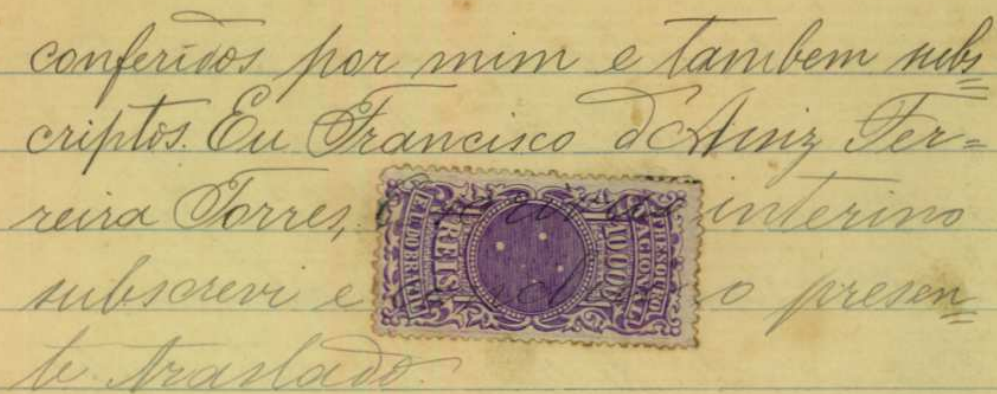 conferidos por mim e tambem subs=
criptos. Eu Francisco d'Auiz Fer=
reira Torres, o escrivão interino
subscrevi e o presen=
te traslado.
THESOURO NACIONAL
REIS